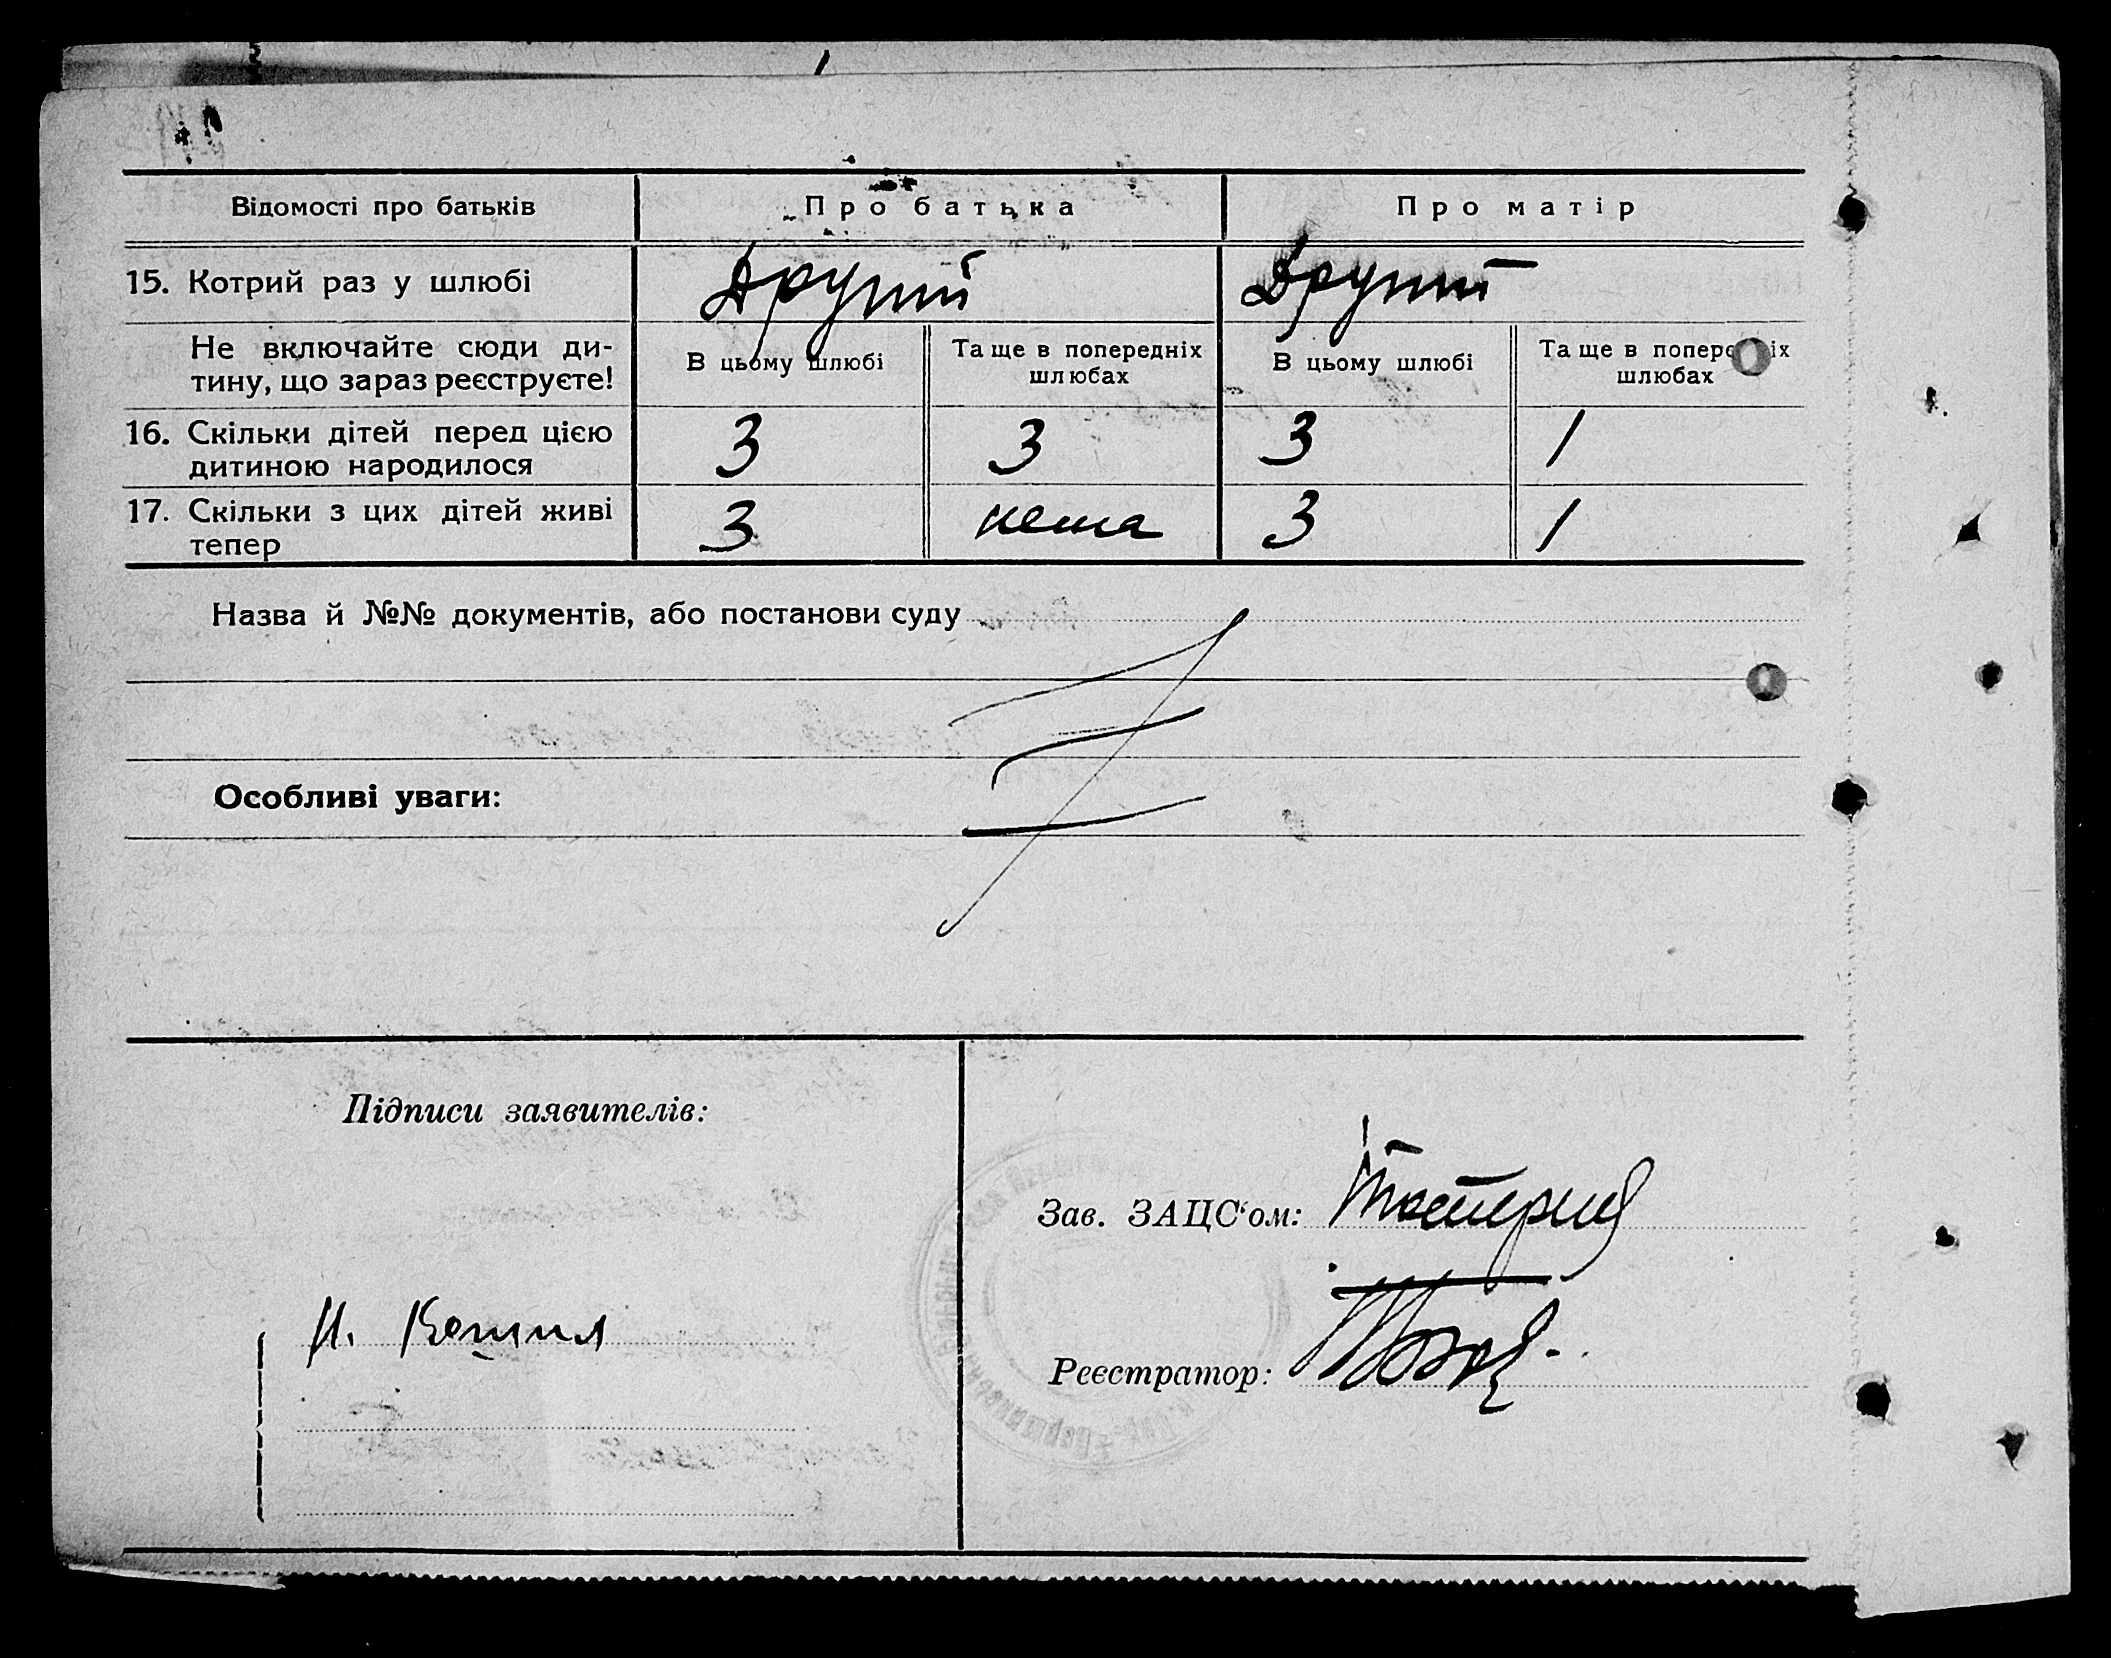 Відомості про батьків Про батька Про матір
15. Котрий раз у шлюбі Другий Другий
Не включайте сюди ди-
тину, що зараз реєструєте!
В цьому шлюбі
Та ще в попередніх
шлюбах
В цьому шлюбі
Та ще в попередніх
шлюбах
16. Скільки дітей перед цією
дитиною народилося
3 3 3 1
17. Скільки з цих дітей живі
тепер
3 нема 3 1
Назва й №№ документів, або постанови суду
Особливі уваги:
Підписи заявителів:
Зав. ЗАЦС‘ом:
Реєстратор: